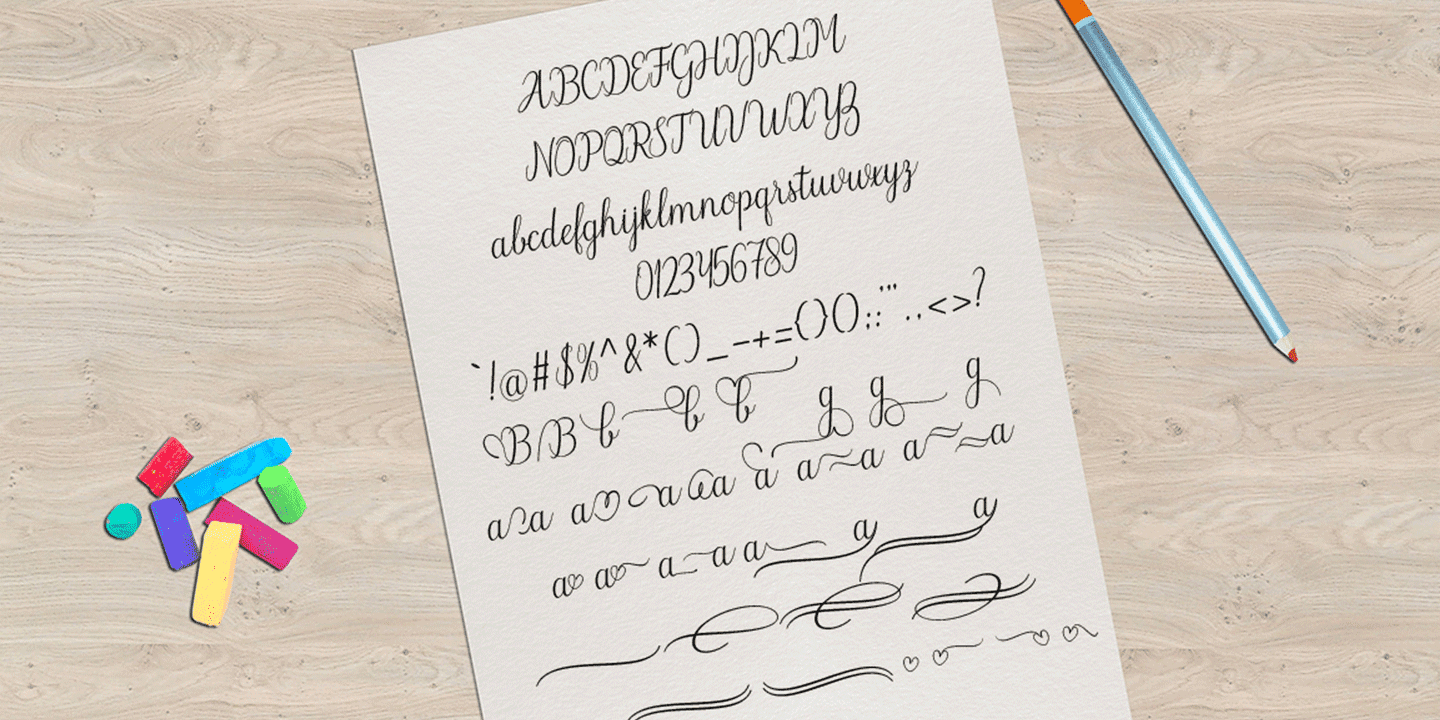 ABCDEFGHIJKLM
NOPQRSTUVWXYZ
abcdefghijklmnopqrstuvwxyz
0123456789
`!@#$%^&*()_-+={}():;"'.,<>?
B B b b b g g g
a a a a a a a a a a
a a a a a a a